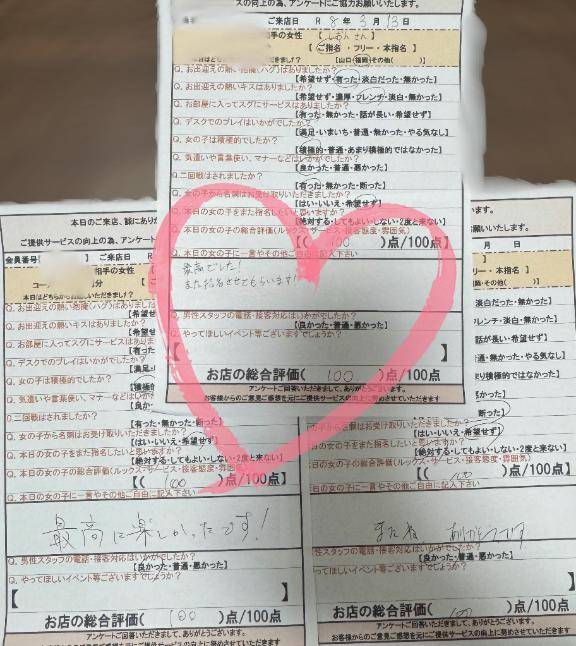 スの向上の為、アンケートにご協力お願いいたします。
ご来店日 R 8年 3月 13日
相手の女性 [しおんさん
【ご指名・フリー・本指名】
本日はどちら きましたか? 【山口・福岡・その他( )】
Q. お出迎えの熱い抱擁(ハグ)はありましたか?
【希望せず・有った・淡白だった・無かった】
Q. お出迎えの熱いキスはありましたか?
【希望せず・濃厚・フレンチ・淡白・無かった】
Q. お部屋に入ってスグにサービスはありましたか?
【有った・無かった・話が長い・希望せず】
Q. デスクでのプレイはいかがでしたか?
【満足・いまいち・普通・無かった・やる気なし】
Q. 女の子は積極的でしたか?
【積極的・普通・あまり積極的ではなかった】
Q. 気遣いや言葉使い、マナーなどはいかがでしたか?
【良かった・普通・悪かった】
Q. 二回戦はされましたか?
【有った・無かった・断った】
Q. 女の子から名刺はお受け取りいただけましたか?
【はい・いいえ・希望せず】
Q. 本日の女の子をまた指名したいと思いますか?
【絶対する・してもよい・しない・2度と来ない】
Q. 本日の女の子の総合評価(ルックス・サービス・接客態度・雰囲気)
【( 100 )点/100点】
Q. 本日の女の子に一言やその他ご自由に記入下さい
最高でした!
また指名させてもらいます!
Q. 男性スタッフの電話・接客対応はいかがでしたか?
【良かった・普通・悪かった】
Q. やってほしいイベント等ございますでしょうか?
【
お店の総合評価( 100 )点/100点
アンケートご回答いただきまして、ありがとうございます。
お客様からのご意見ご感想を元にご提供サービスの向上に努めさせていただきます
本日のご来店、誠にありが
ご提供サービスの向上の為、アンケート
会員番号【 】 ご来店日 R
相手の女性
コー 分
本日はどちら だきましたか?
Q. お出迎えの熱い抱擁(ハグ)はありましたか
【希望せ
Q. お出迎えの熱いキスはありましたか?
【希望せ
Q. お部屋に入ってスグにサービスはありましたか
【有った
Q. デスクでのプレイはいかがでしたか?
【満足・
Q. 女の子は積極的でしたか?
【積極
Q. 気遣いや言葉使い、マナーなどはいか
【良か
Q. 二回戦はされましたか?
【有った・無かった・断った】
Q. 女の子から名刺はお受け取りいただけましたか?
【はい・いいえ・希望せず】
Q. 本日の女の子をまた指名したいと思いますか?
【絶対する・してもよい・しない・2度と来ない】
Q. 本日の女の子の総合評価(ルックス・サービス・接客態度・雰囲気
【( 100 )点/100点】
Q. 本日の女の子に一言やその他ご自由に記入下さい
最高に楽しかったです!
Q. 男性スタッフの電話・接客対応はいかがでしたか?
【良かった・普通・悪かった】
Q. やってほしいイベント等ございますでしょうか?
【 】
お店の総合評価( 100 )点/100点
アンケートご回答いただきまして、ありがとうございます。
お客様からのご意見ご感想を元にご提供サービスの向上に努めさせていただきます
います。
願いいたします。
月 日
フリー・本指名】
・その他( )】
淡白だった・無かった】
フレンチ・淡白・無かった】
・話が長い・希望せず】
通・無かった・やる気なし】
まり積極的ではなかった】
かった】
断った】
の子から名刺はお受け取りいただけましたか?
【はい・いいえ・希望せず】
日の女の子をまた指名したいと思いますか?
【絶対する・してもよい・しない・2度と来ない】
日の女の子の総合評価(ルックス・サービス・接客態度・雰囲気)
【( 100 )点/100点】
日の女の子に一言やその他ご自由に記入下さい
またね
性スタッフの電話・接客対応はいかがでしたか?
【良かった・普通・悪かった】
ってほしいイベント等ございますでしょうか?
】
お店の総合評価( 100 )点/100点
アンケートご回答いただきまして、ありがとうございます。
お客様からのご意見ご感想を元にご提供サービスの向上に努めさせていただきます